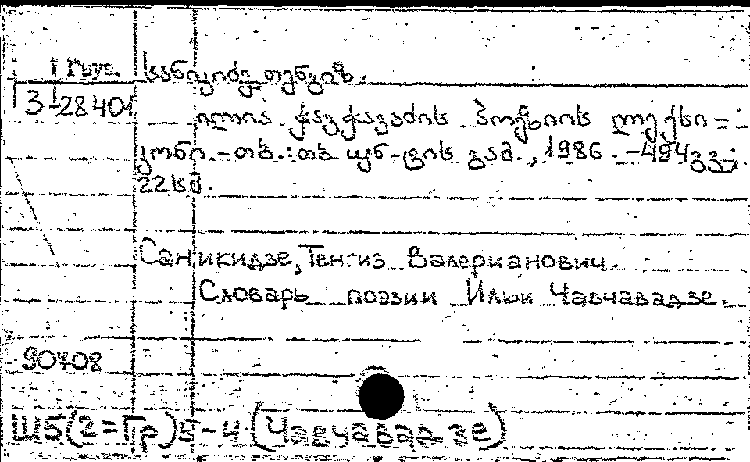 სანიკიძე თენგიზ.
3 28401
ილია ჭავჭავაძის პოეზიის ლექსი=
კონი.-თბ.:თბ. უნ-ტის გამ., 1986.-494გვ.;
22სმ.
Саникидзе, Тенгиз Валерианович.
Словарь поэзии Ильи Чавчавадзе.
90708
Ш5(2=Гр)5-4(Чавчавадзе)